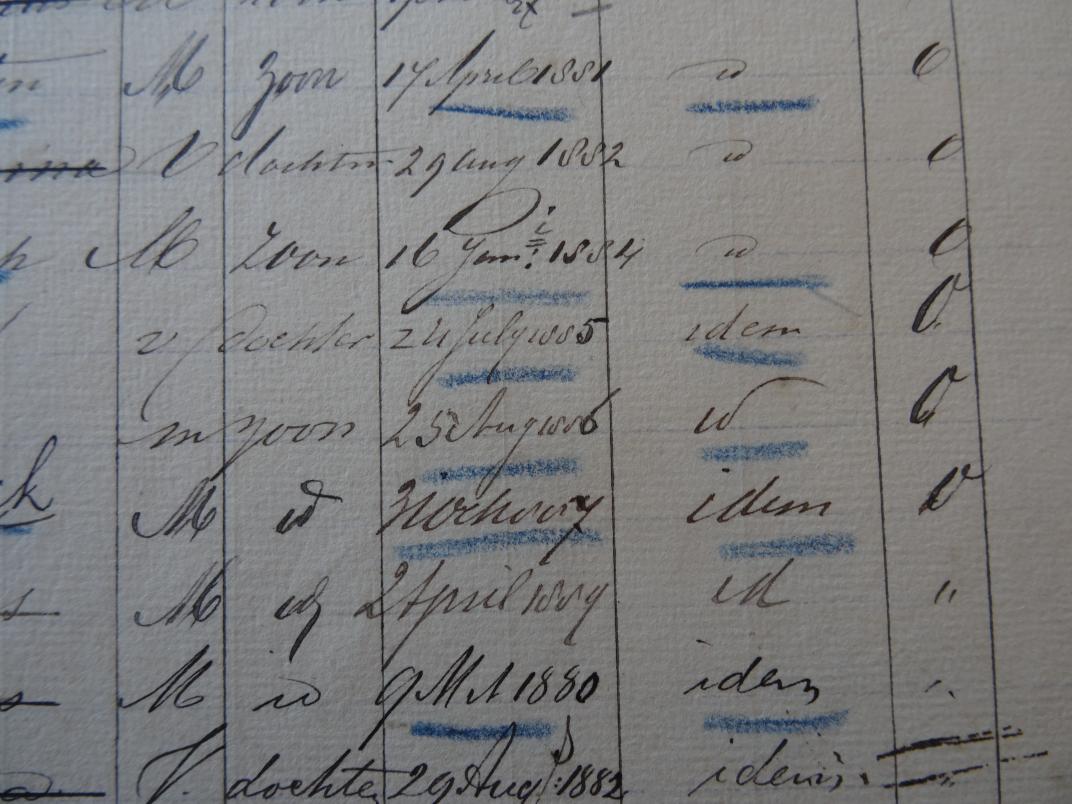 M zoon 17 April 1881 id O
V dochter 29 aug 1882 id O
M zoon 16 Juni 1884 id O
v dochter 24 July 1885 idem O
m zoon 25 Aug 1886 id O
k M id 1887 idem O
s M id 2 April 1889 id "
s M id 9 Mrt 1880 idem "
V. dochter 29 Aug 1882 idem